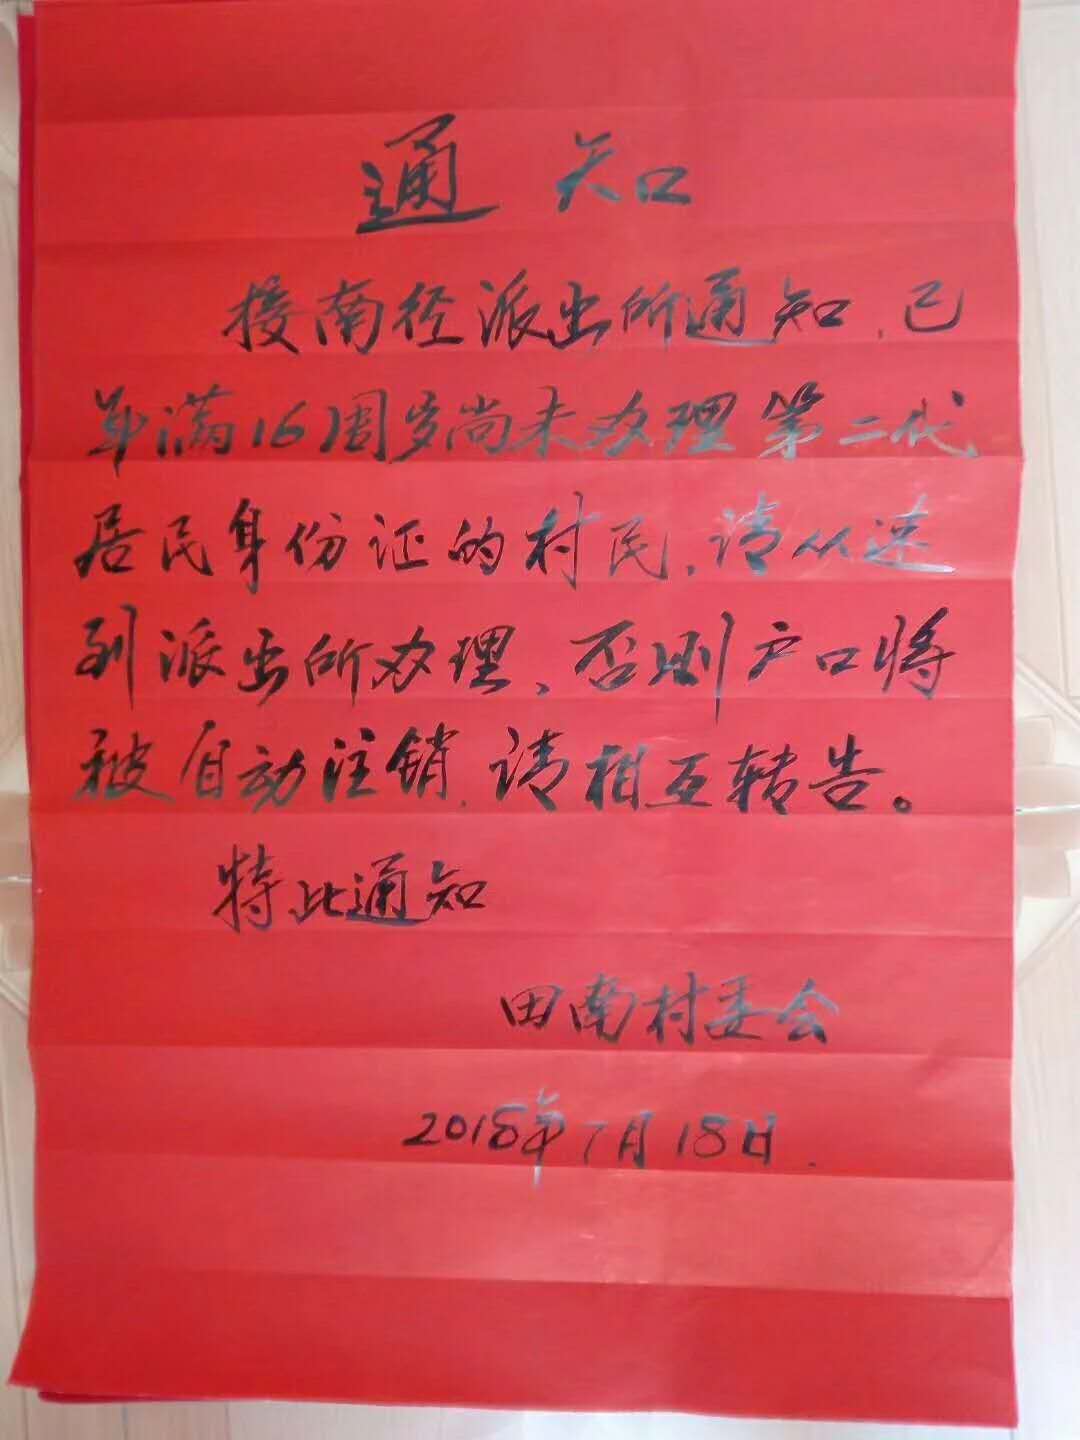 通知
接南径派出所通知,已
年满16周岁尚未办理第二代
居民身份证的村民,请从速
到派出所办理、否则户口将
被自动注销,请相互转告。
特此通知
田南村委会
2018年7月18日.